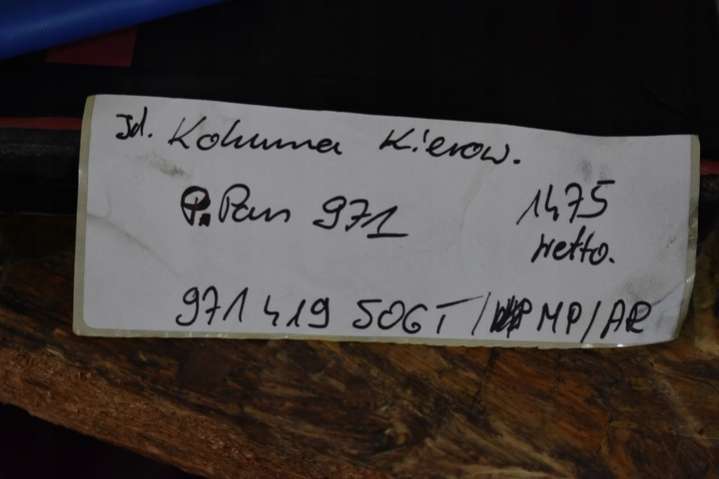 Jd. Kolumna Kierow.
P. Pan 971 1475
netto.
971 419 506 T / MP / AR